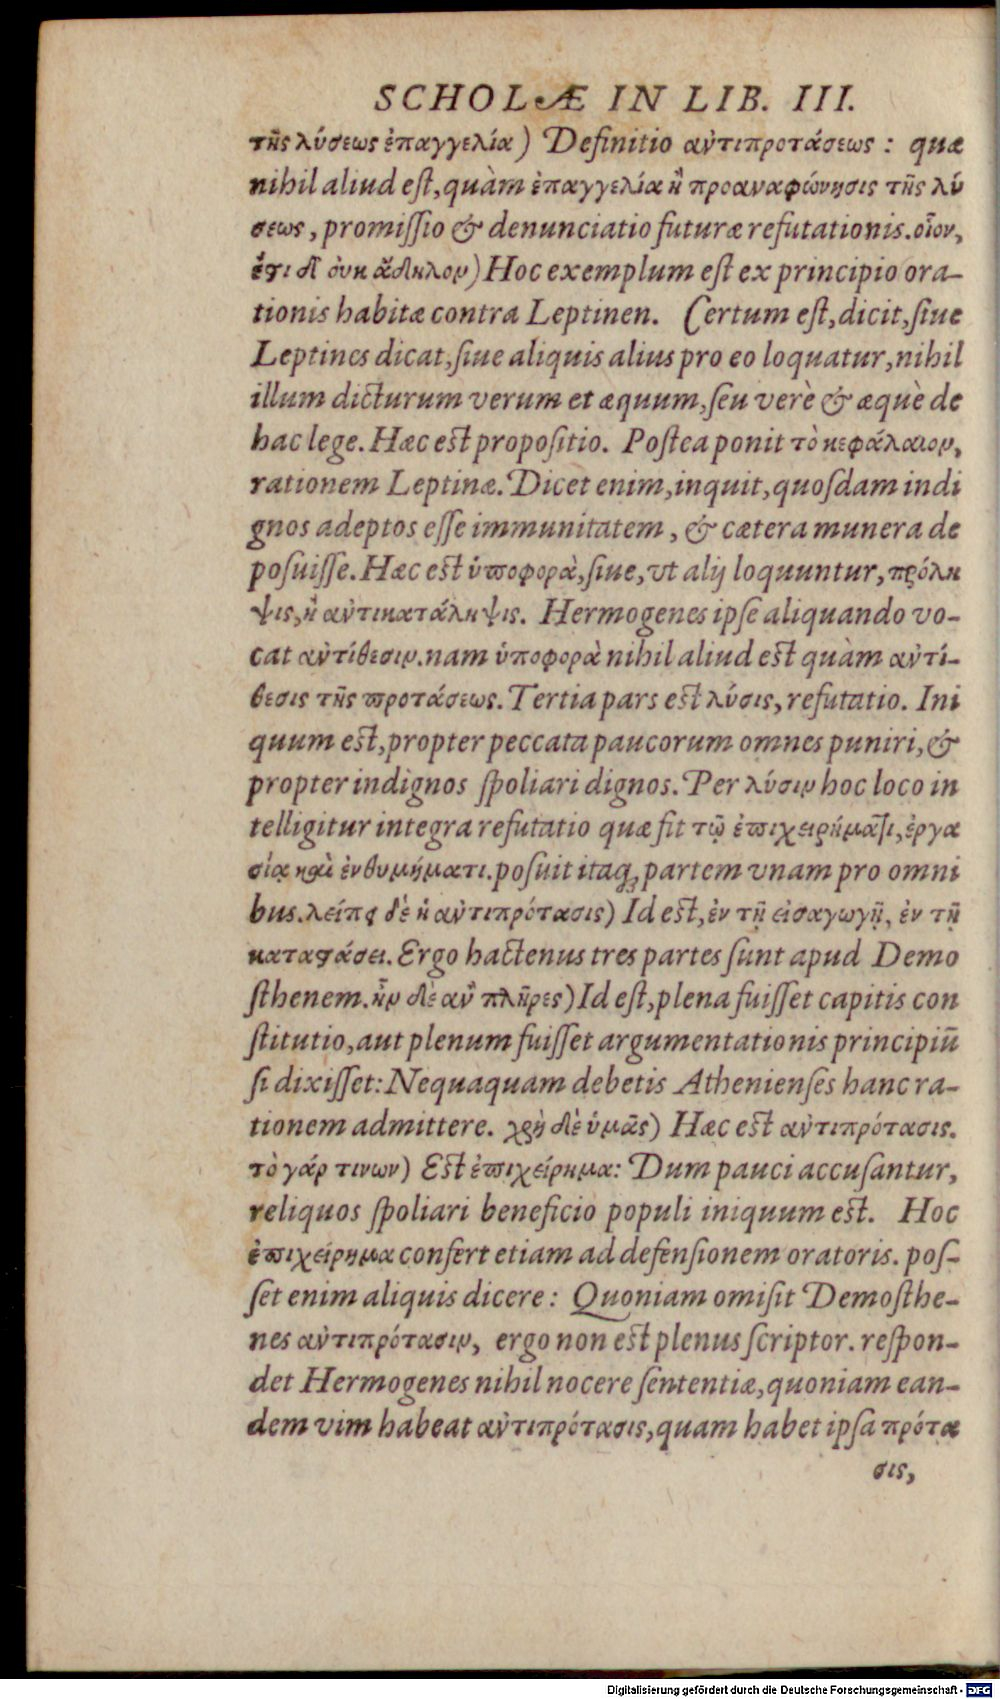 SCHOLÆ IN LIB. III.
τῆς λύσεως ἐπαγγελία) Definitio ἀντιπροτάσεως: quæ
nihil aliud eſt, quàm ἐπαγγελία ἢ προαναφώνησις τῆς λύ
σεως, promiſſio & denunciatio futuræ refutationis. οἷον,
ἔϛι δ᾽ οὐκ ἄδηλον) Hoc exemplum eſt ex principio ora-
tionis habitæ contra Leptinen. Certum eſt, dicit, ſiue
Leptines dicat, ſiue aliquis alius pro eo loquatur, nihil
illum dicturum verum et æquum, ſeu verè & æquè de
hac lege. Hæc est propoſitio. Poſtea ponit τὸ κεφάλαιον,
rationem Leptinæ. Dicet enim, inquit, quoſdam indi
gnos adeptos eſſe immunitatem, & cætera munera de
poſuiſſe. Hæc est ὑποφορὰ, ſiue, vt alij loquuntur, πρόλη
ψις, ἢ ἀντικατάληψις. Hermogenes ipſe aliquando vo-
cat ἀντίθεσιν. nam ὑποφορὰ nihil aliud est quàm ἀντί-
θεσις τῆς προτάσεως. Tertia pars est λύσις, refutatio. Ini
quum est, propter peccata paucorum omnes puniri, &
propter indignos ſpoliari dignos. Per λύσιν hoc loco in
telligitur integra refutatio quæ fit τῷ ἐπιχειρήματι, ἐργα
σίᾳ καὶ ἐνθυμήματι. poſuit itaq; partem vnam pro omni
bus. λείπει δὲ ἡ ἀντιπρότασις) Id est, ἐν τῇ εἰσαγωγῇ, ἐν τῇ
καταϛάσει. Ergo hactenus tres partes ſunt apud Demo
ſthenem. ἦν δὲ ἂν πλῆρες) Id eſt, plena fuiſſet capitis con
ſtitutio, aut plenum fuiſſet argumentationis principiũ
ſi dixiſſet: Nequaquam debetis Athenienſes hanc ra-
tionem admittere. χρὴ δὲ ὑμᾶς) Hæc est ἀντιπρότασις.
τὸ γάρ τινων) Est ἐπιχείρημα: Dum pauci accuſantur,
reliquos ſpoliari beneficio populi iniquum est. Hoc
ἐπιχείρημα confert etiam ad defenſionem oratoris. poſ-
ſet enim aliquis dicere: Quoniam omiſit Demoſthe-
nes ἀντιπρότασιν, ergo non est plenus ſcriptor. reſpon-
det Hermogenes nihil nocere ſententiæ, quoniam ean-
dem vim habeat ἀντιπρότασις, quam habet ipſa πρότα
σις,
Digitalisierung gefördert durch die Deutsche Forschungsgemeinschaft - DFG